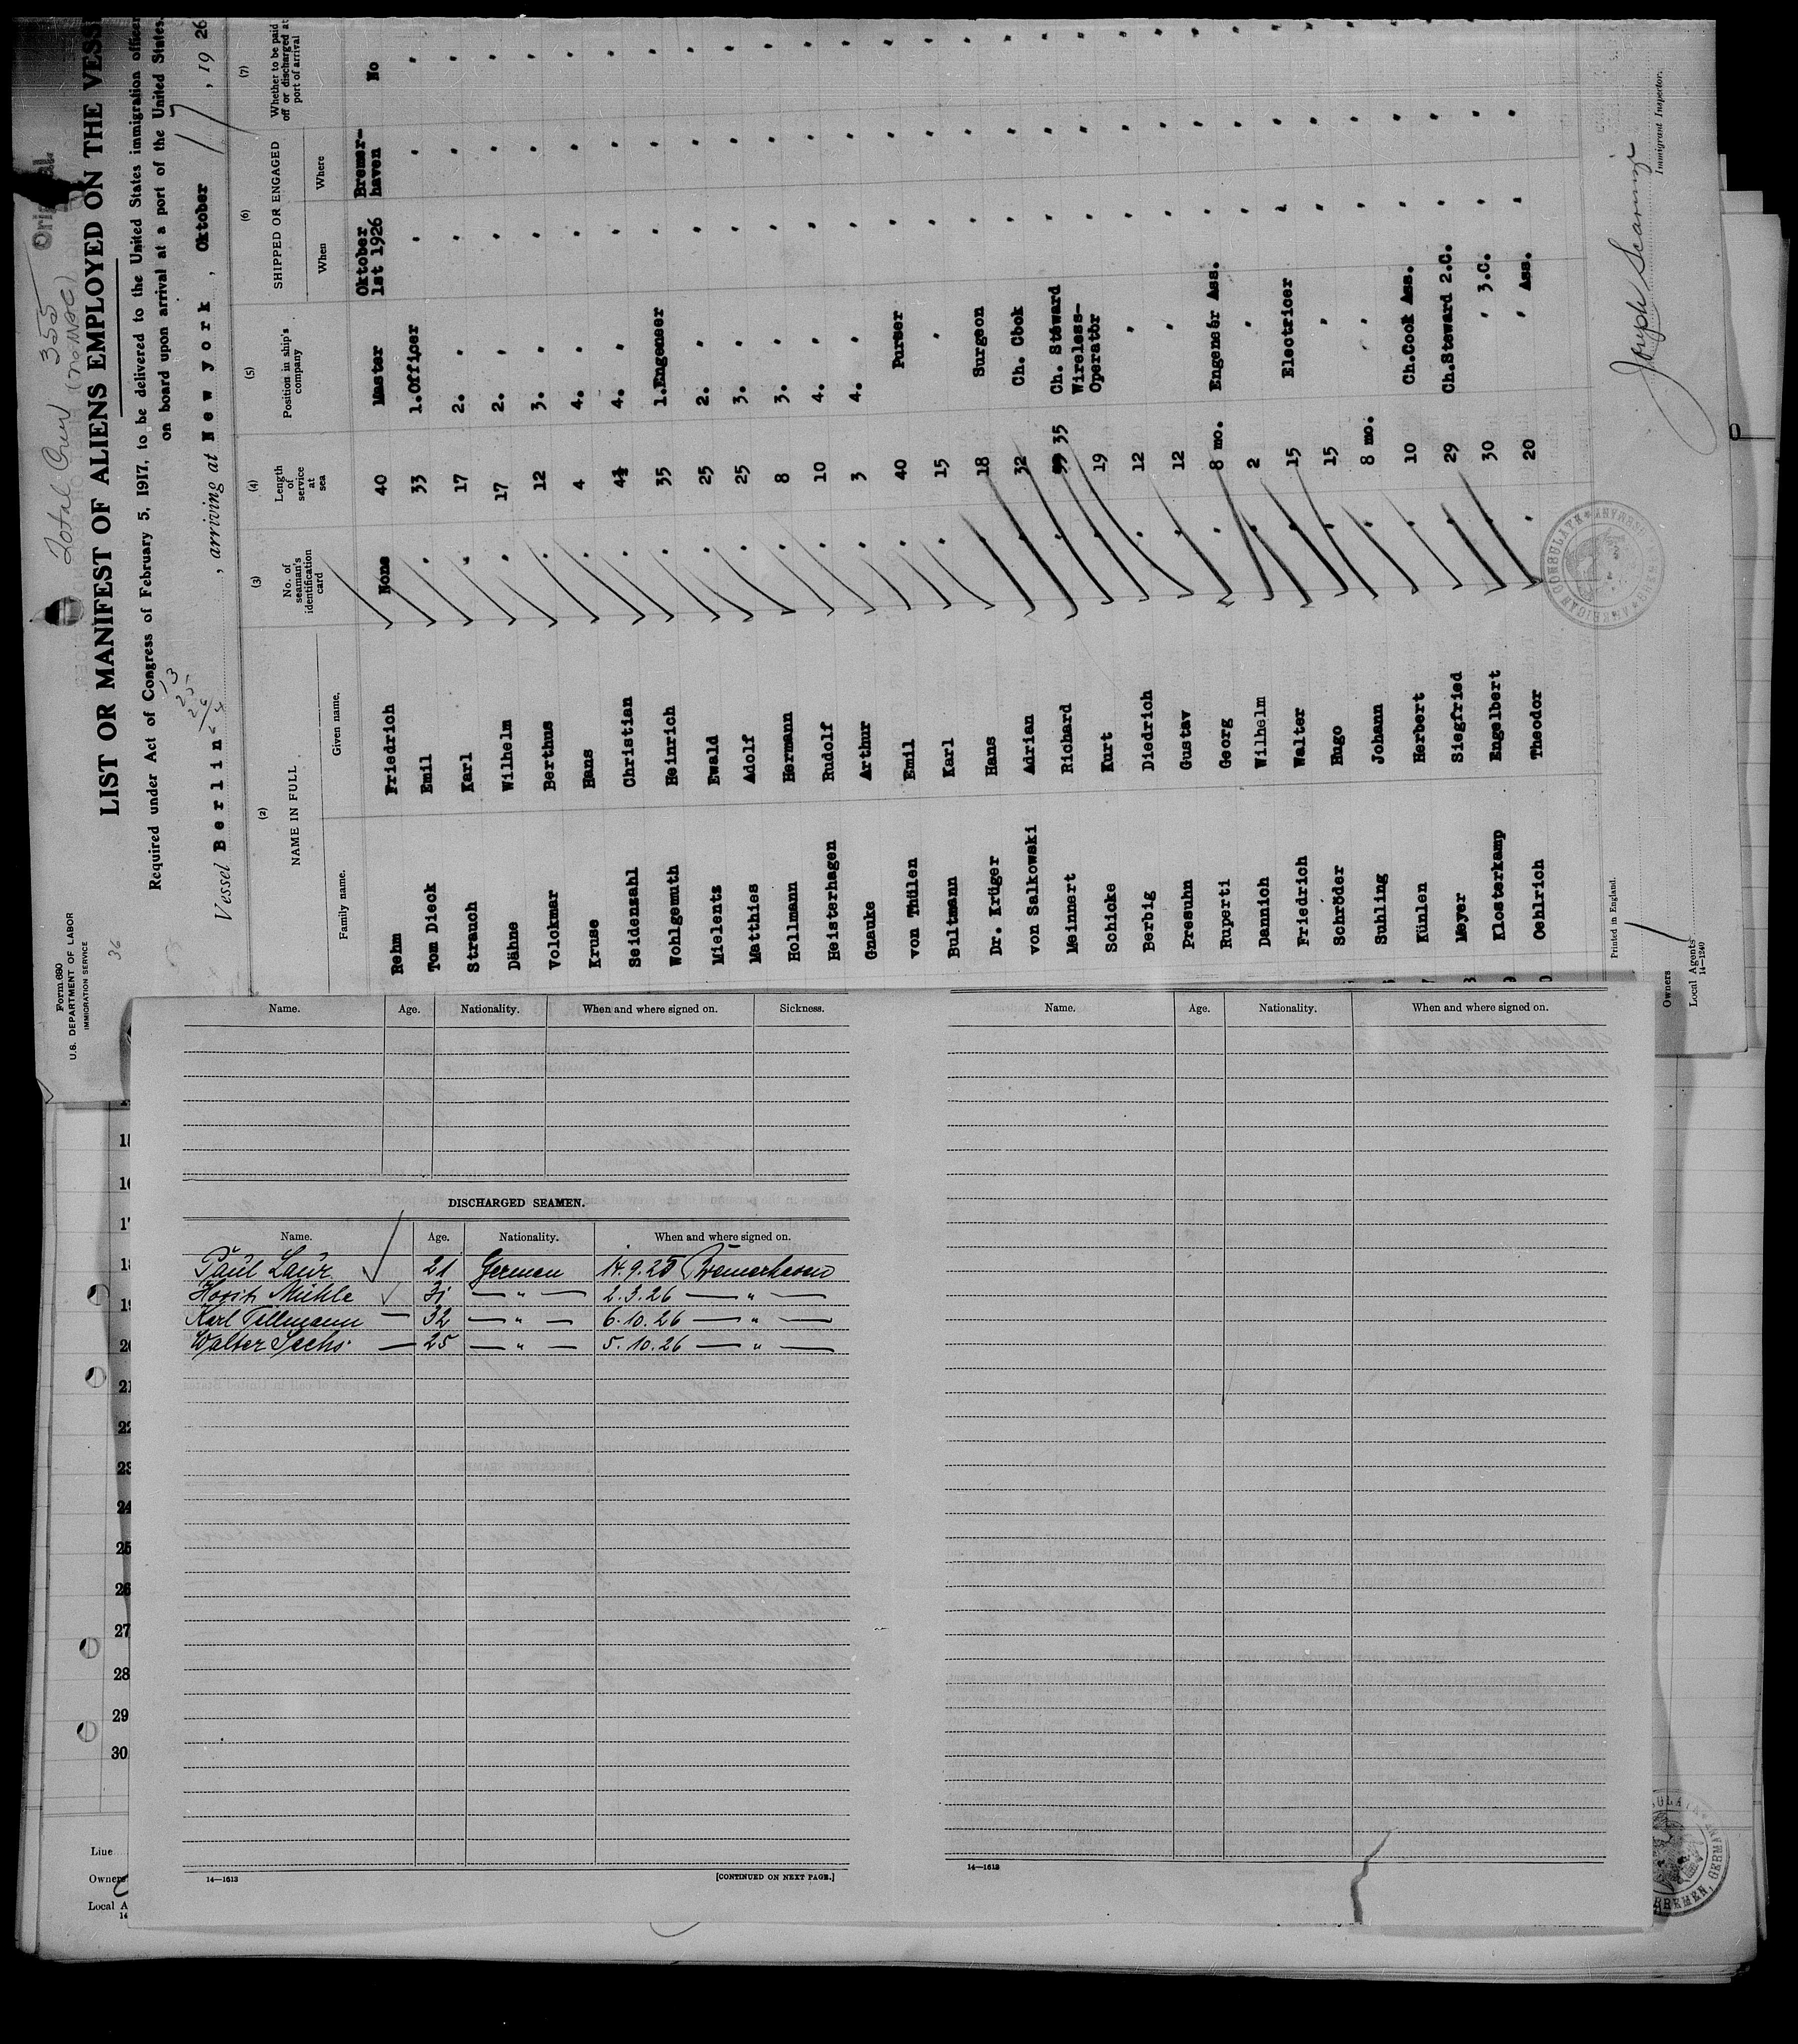 Original
Total Crew 355
Form 680
U.S. DEPARTMENT OF LABOR
IMMIGRATION SERVICE
36
LIST OR MANIFEST OF ALIENS EMPLOYED ON THE VESS
Required under Act of Congress of February 5, 1917, to be delivered to the United States immigration officer
on board upon arrival at a port of the United States.
13
25
26
Vessel Berlin, arriving at Newyork, Oktober 17, 1926
(2) (3) (4) (5) (6) (7)
NAME IN FULL No. of seaman's identification card Length of service at sea Position in ship's company SHIPPED OR ENGAGED Whether to be paid off or discharged at port of arrival
Family name. Given name. When Where
Rehm Friedrich None 40 Master Oktober 1st 1926 Bremer-haven No
Tom Dieck Emil " 33 1.Officer " " "
Strauch Karl " 17 2. " " " "
Dähne Wilhelm " 17 2. " " " "
Volckmar Berthus " 12 3. " " " "
Kruse Hans " 4 4. " " " "
Seidenzahl Christian " 4½ 4. " " " "
Wohlgemuth Heinrich " 35 1.Engeneer " " "
Mielentz Ewald " 25 2. " " " "
Matthies Adolf " 25 3. " " " "
Hollmann Hermann " 8 3. " " " "
Heisterhagen Rudolf " 10 4. " " " "
Gnauke Arthur " 3 4. " " " "
von Thülen Emil " 40 Purser " " "
Bultmann Karl " 15 " " " "
Dr. Krüger Hans " 18 Surgeon " " "
von Salkowski Adrian " 32 Ch. Cook " " "
Meinnert Richard " 35 Ch. Steward " " "
Schicke Kurt " 19 Wireless-Operator " " "
Berbig Diedrich " 12 " " " "
Presuhn Gustav " 12 " " " "
Ruperti Georg " 8 mo. Engeneer Ass. " " "
Dannich Wilhelm " 2 " " " "
Friedrich Walter " 15 Electricer " " "
Schröder Hugo " 15 " " " "
Suhling Johann " 8 mo. " " " "
Künlen Herbert " 10 Ch.Cook Ass. " " "
Meyer Siegfried " 29 Ch.Steward 2.C. " " "
Klosterkamp Engelbert " 30 " 3.C. " " "
Oehlrich Theodor " 20 " Ass. " " "
AMERICAN CONSULATE BREMEN GERMANY
Joseph
Immigrant Inspector.
Printed in England.
Owners
Local Agents
14—1240
Name. Age. Nationality. When and where signed on. Sickness.
DISCHARGED SEAMEN.
Name. Age. Nationality. When and where signed on.
Paul Laur 21 German 14.9.25 Bremerhaven
Horst Mühle 31 — " — 2.3.26 — " —
Karl Tillmann — 32 — " — 6.10.26 — " —
Walter Sachs — 25 — " — 5.10.26 — " —
14—1613
[CONTINUED ON NEXT PAGE.]
Name. Age. Nationality. When and where signed on.
14—1613
15
16
17
18
19
20
21
22
23
24
25
26
27
28
29
30
Line
Owners
Local A
14
BREMEN, GERMANY